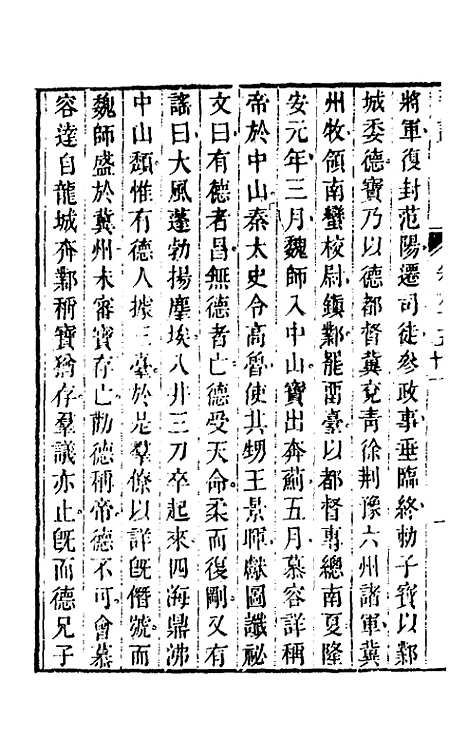 將軍復封范陽遷司徒參政事垂臨終勅子寶以鄴
城委德寶乃以德都督冀兗青徐荆豫六州諸軍冀
州牧領南蠻校尉鎮鄴罷畱臺以都督專總南夏隆
安元年三月魏師入中山寶出奔薊五月慕容詳稱
帝於中山秦太史令高魯使其甥王景暉獻圖讖祕
文曰有德者昌無德者亡德受天命柔而復剛又有
謠曰大風蓬勃揚塵埃八井三刀卒起來四海鼎沸
中山頹惟有德人據三臺於是羣僚以詳旣僭號而
魏師盛於冀州未審寶存亡勸德稱帝德不可會慕
容達自龍城奔鄴稱寶猶存羣議亦止旣而德兄子